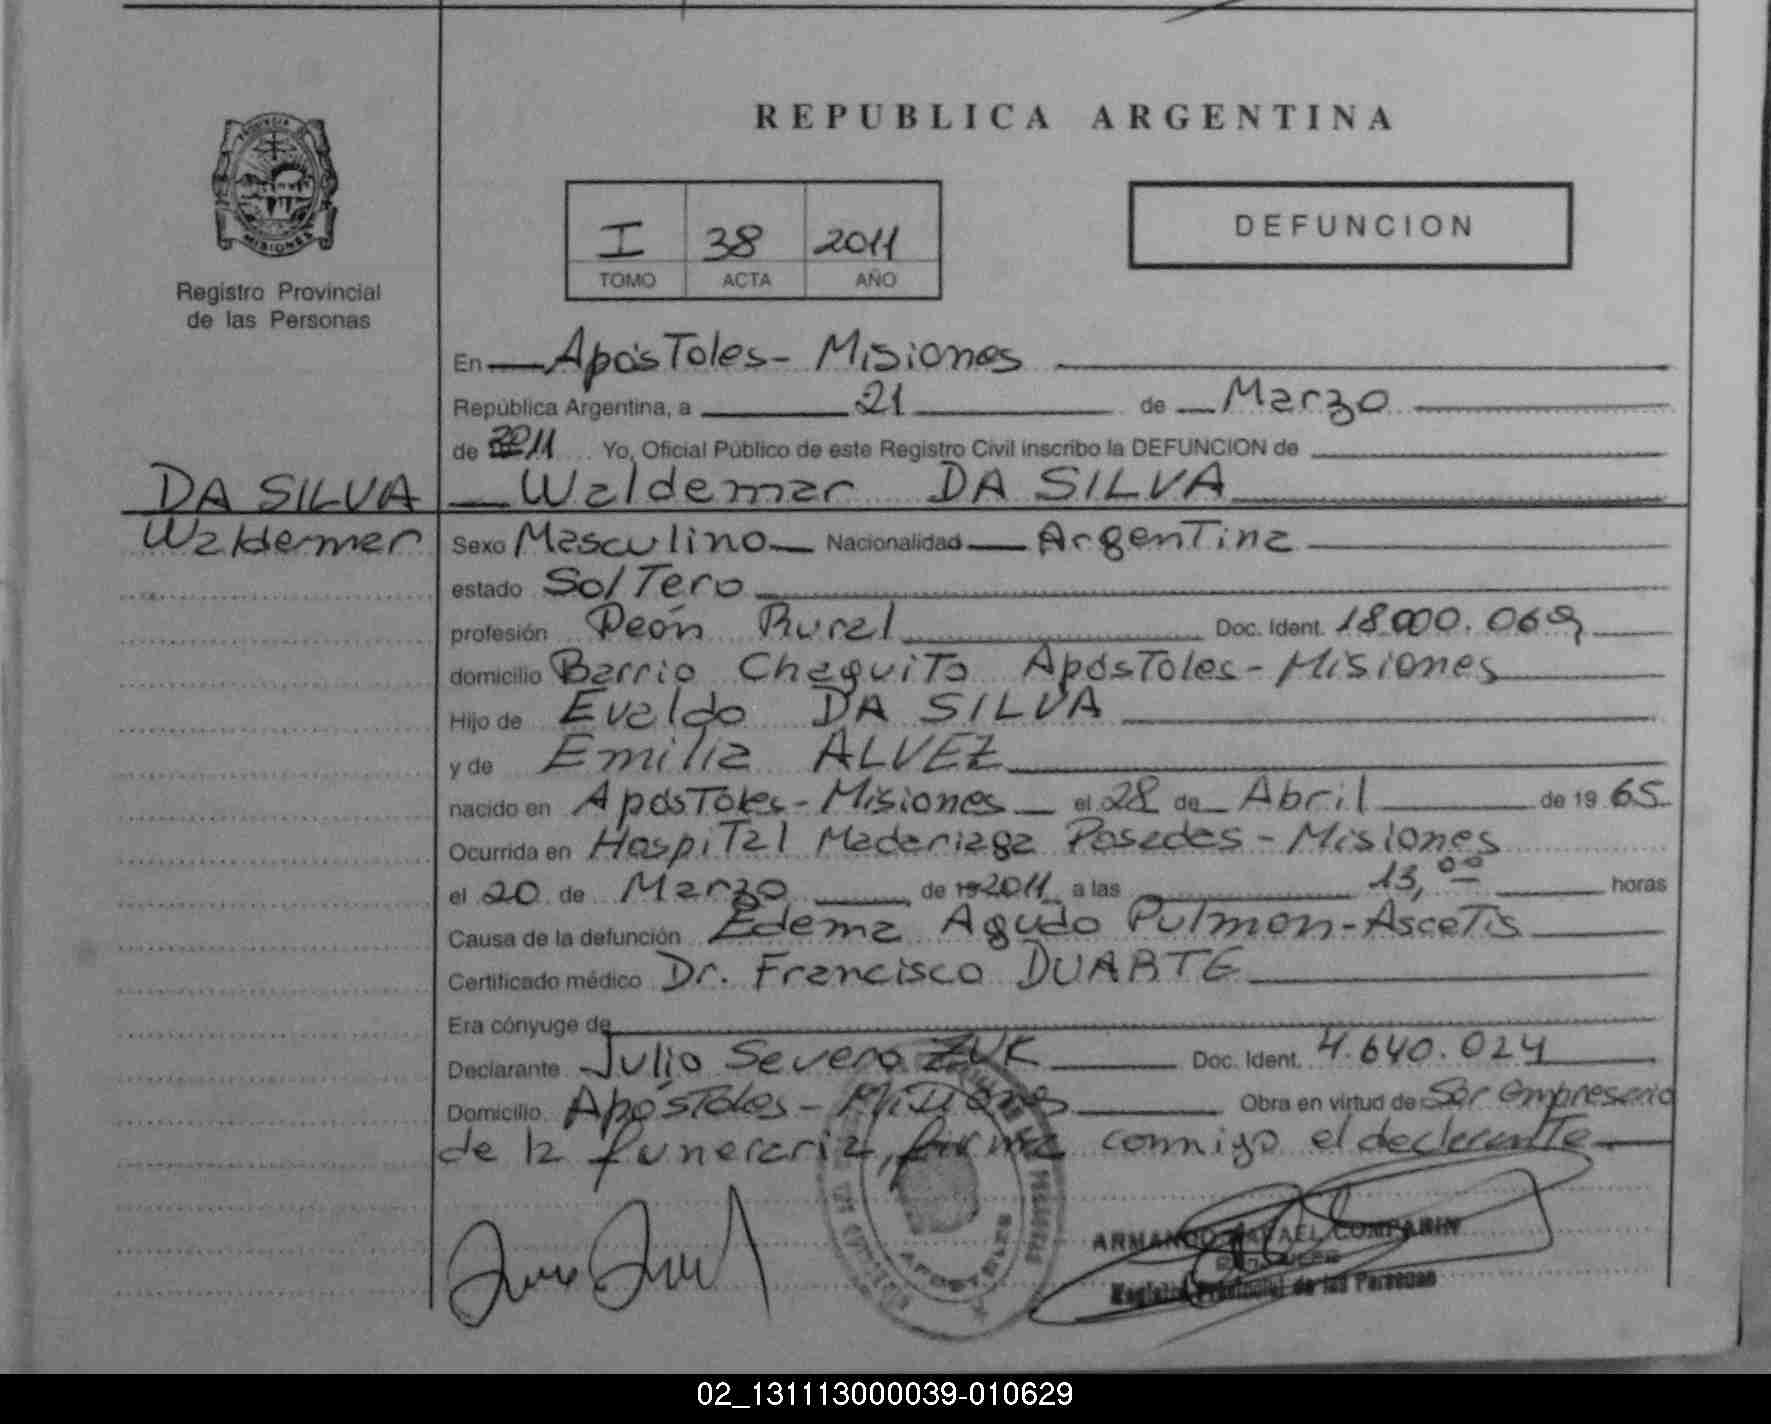 REPUBLICA ARGENTINA
PROVINCIA DE
MISIONES
Registro Provincial
de las Personas
I 38 2011
TOMO ACTA AÑO
DEFUNCION
En Apóstoles - Misiones
República Argentina, a 21 de Marzo
de 2011 Yo, Oficial Público de este Registro Civil inscribo la DEFUNCION de
DA SILVA Waldemar DA SILVA
Waldemar Sexo Masculino Nacionalidad Argentina
estado Soltero
profesión Peón Rural Doc. Ident. 18.000.069
domicilio Barrio Chaquito Apóstoles - Misiones
Hijo de Evaldo DA SILVA
y de Emilia ALVEZ
nacido en Apóstoles - Misiones el 28 de Abril de 1965
Ocurrida en Hospital Madariaga Posadas - Misiones
el 20 de Marzo de 19 2011 a las 13,00 horas
Causa de la defunción Edema Agudo Pulmon - Ascetis
Certificado médico Dr. Francisco DUARTE
Era cónyuge de
Declarante Julio Severo ZUK Doc. Ident. 4.640.024
Domicilio Apóstoles - Misiones Obra en virtud de Ser empresario
de la funeraria, firma conmigo el declarante
APOSTOLES
ARMANDO RAFAEL COMPARIN
Registro Provincial de las Personas
02_131113000039-010629